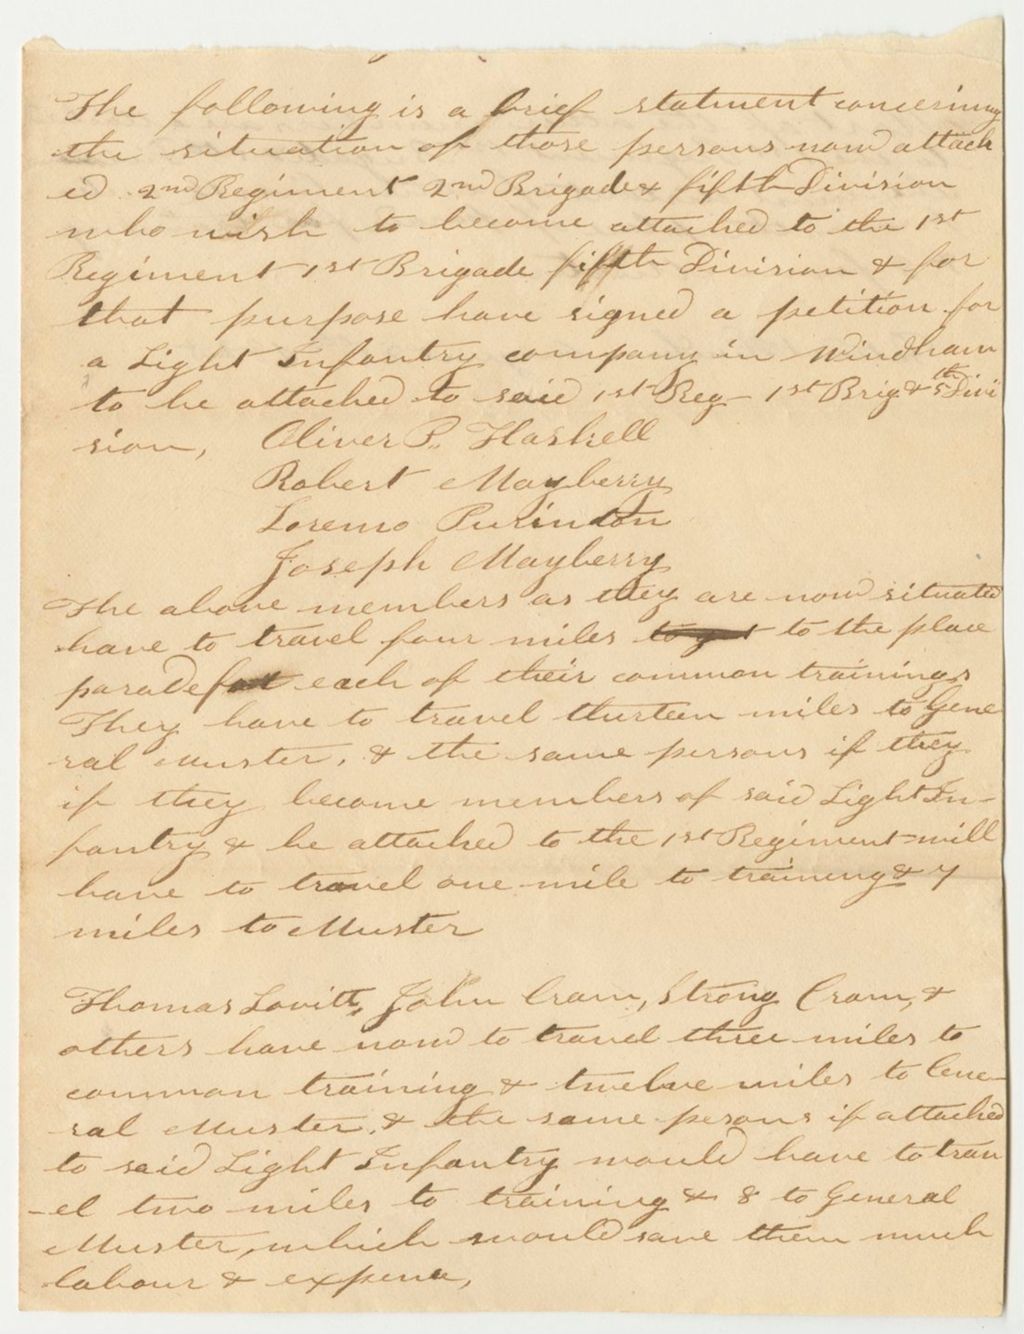 The following is a brief statment concerning
the situation of those persons now attach
ed 2nd Regiment 2nd Brigade & fifth Division
who wish to become attached to the 1st
Regiment 1st Brigade fifth Division & for
that purpose have signed a petition for
a Light Infantry company in Windham
to be attached to said 1st Reg- 1st Brig & 5th Divi
sion, Oliver P. Haskell
Robert Mayberry
Loremo Purinton
Joseph Mayberry
The above members as they are now situated
have to travel four miles to the place
parade each of their common trainings
They have to travel thirteen miles to Gene
ral Muster, & the same persons if they
if they become members of said Light In-
fantry & be attached to the 1st Regiment will
have to travel one mile to training & 7
miles to Muster
Thomas Lovitt, John Cram, Strong Cram, &
others have now to travel three miles to
common training & twelve miles to Gene-
ral Muster, & the same persons if attached
to said Light Infantry would have to trav
-el two miles to training & 8 to General
Muster, which would save them much
labour & expense,